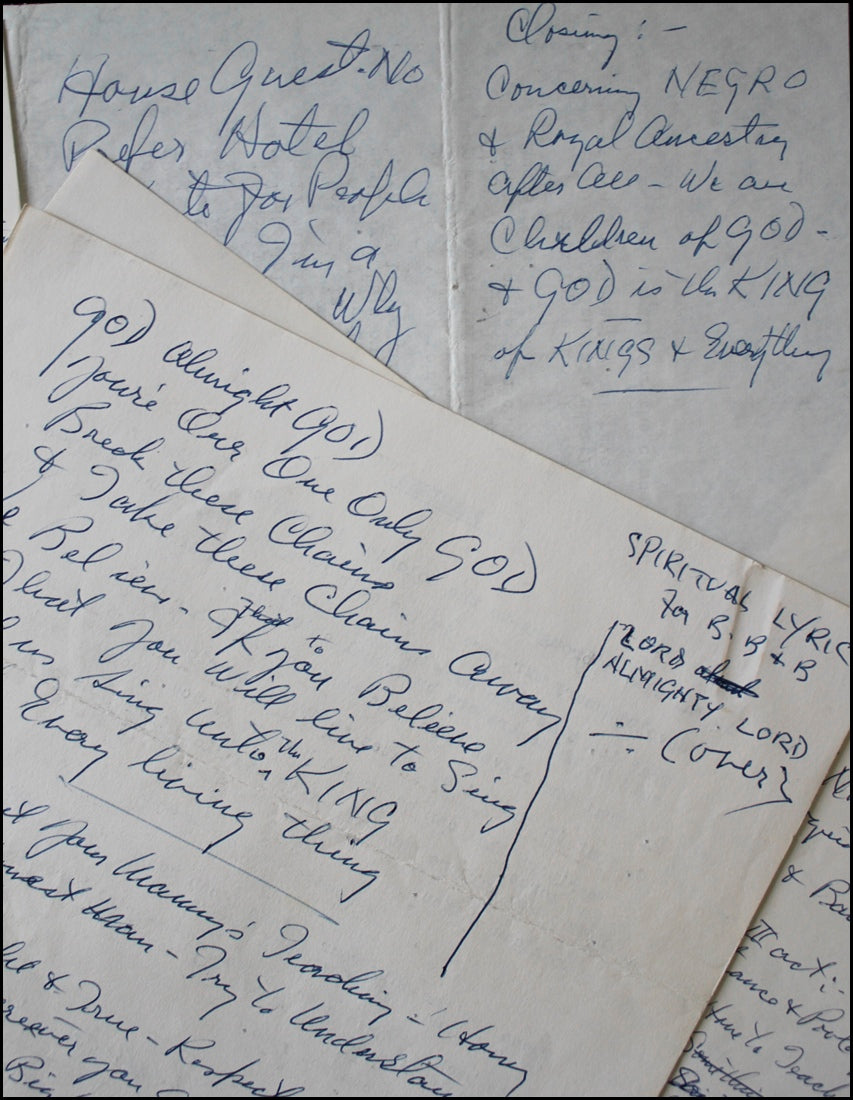 House Guest - No
Prefer Hotel
to For People
I'm a
Why
Closing : -
Concerning NEGRO
& Royal Ancestry
after all - We are
Children of GOD -
& GOD is the KING
of KINGS & Everything
GOD almight GOD
You're Our One Only GOD
Break these Chains
& Take these Chains away
Believe - that If you Believe
That You Will live to Sing
us Sing unto the KING
Every living thing
SPIRITUAL LYRIC
For B. B & B
LORD
ALMIGHTY LORD
(over)
Your Mammy's Teaching = Honey
Man - Try to Understand
& True - Respect
you
Big
&
III act :-
& 
How to Teach
Something